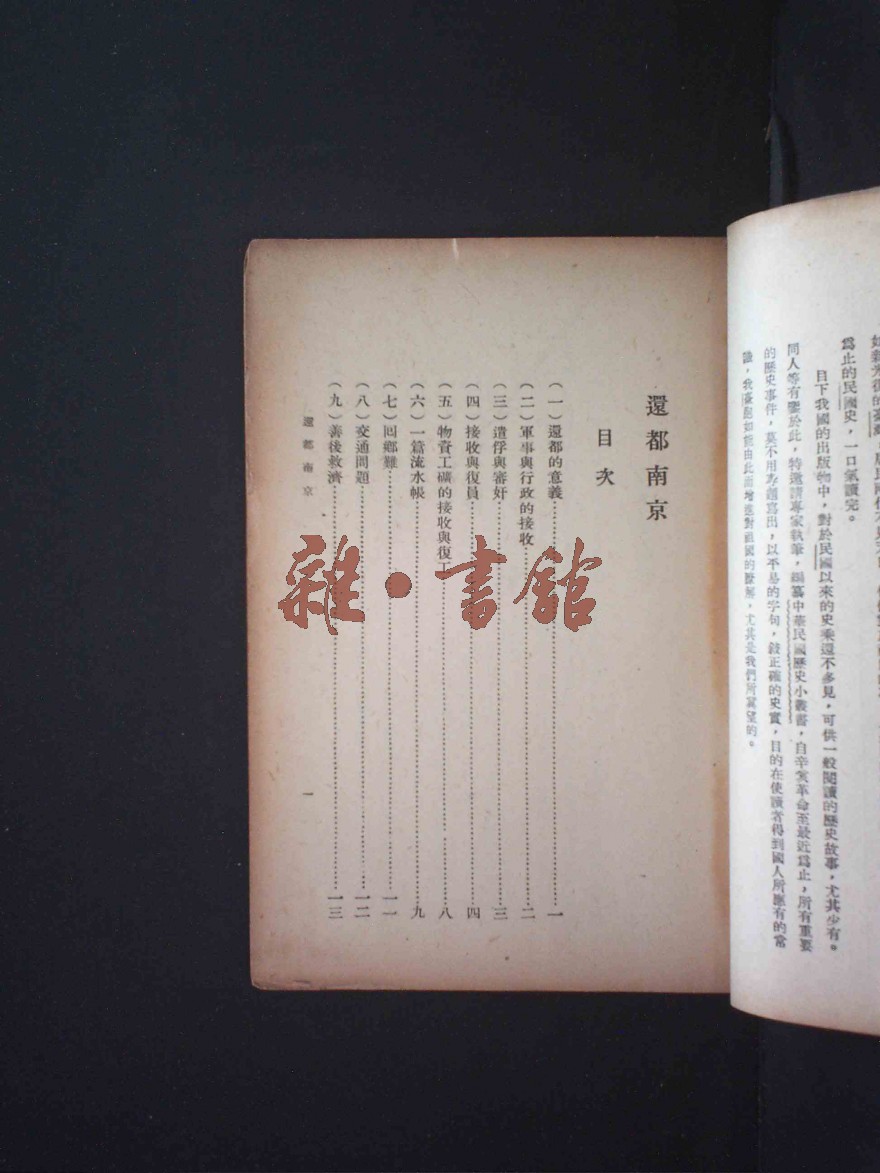 爲止的民國史，一口氣讀完。
目下我國的出版物中，對於民國以來的史乘還不多見，可供一般閱讀的歷史故事，尤其少有。
同人等有鑒於此，特邀請專家執筆，編纂中華民國歷史小叢書，自辛亥革命至最近爲止，所有重要
的歷史事件，莫不用專題寫出，以平易的字句，敍正確的史實，目的在使讀者得到國人所應有的常
識，我臺胞如能由此而增進對祖國的瞭解，尤其是我們所冀望的。
還都南京
目次
（一）還都的意義……一
（二）軍事與行政的接收……二
（三）遣俘與審奸……三
（四）接收與復員……四
（五）物資工礦的接收與復工……八
（六）一篇流水帳……九
（七）回鄉難……一一
（八）交通問題……一二
（九）善後救濟……一三
還都南京
一
雜·書館